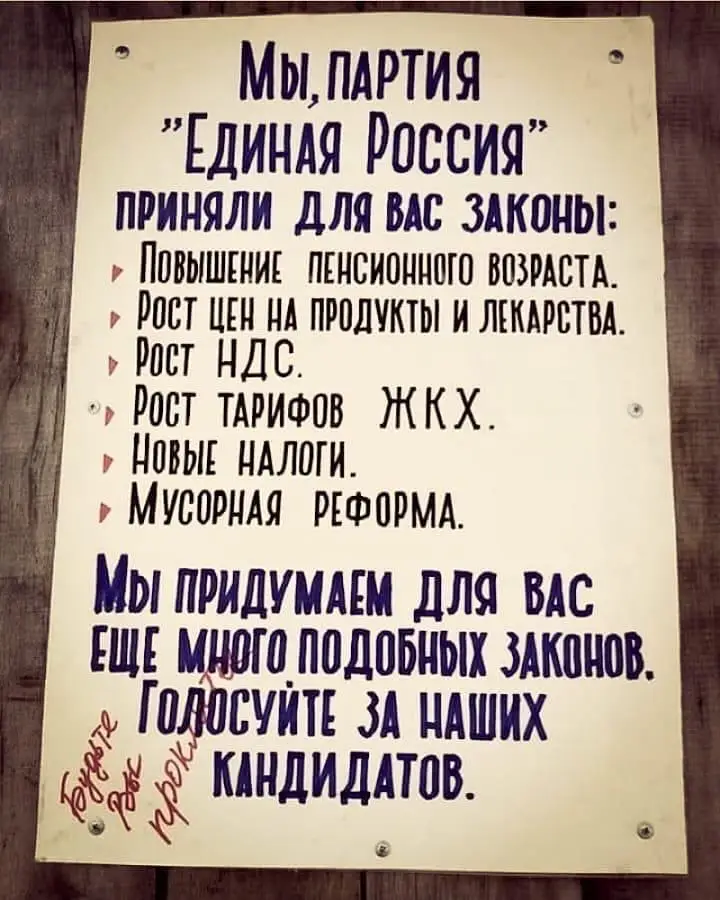 Мы, ПАРТИЯ
"ЕДИНАЯ РОССИЯ"
ПРИНЯЛИ ДЛЯ ВАС ЗАКОНЫ:
ПОВЫШЕНИЕ ПЕНСИОННОГО ВОЗРАСТА.
РОСТ ЦЕН НА ПРОДУКТЫ И ЛЕКАРСТВА.
РОСТ НДС.
РОСТ ТАРИФОВ ЖКХ.
НОВЫЕ НАЛОГИ.
МУСОРНАЯ РЕФОРМА.
МЫ ПРИДУМАЕМ ДЛЯ ВАС
ЕЩЕ МНОГО ПОДОБНЫХ ЗАКОНОВ.
ГОЛОСУЙТЕ ЗА НАШИХ
КАНДИДАТОВ.
Будьте
Вы
прокляты